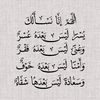 اللهم إنا نسألك
يسرا ليس بعده عسرا
وغنى ليس بعده فقر
وأمنا ليس بعده خوف
وسعادة ليس بعدها شقاء